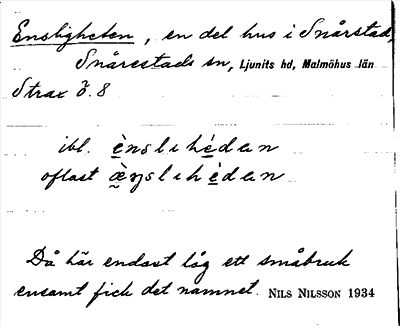 Ensligheten, en del hus i Snårstad,
Snårestads sn, Ljunits hd, Malmöhus län
Strax Ö. 8
ibl. ènslihédan
oftast
Då här endast låg ett småbruk
ensamt fick det namnet. NILS NILSSON 1934